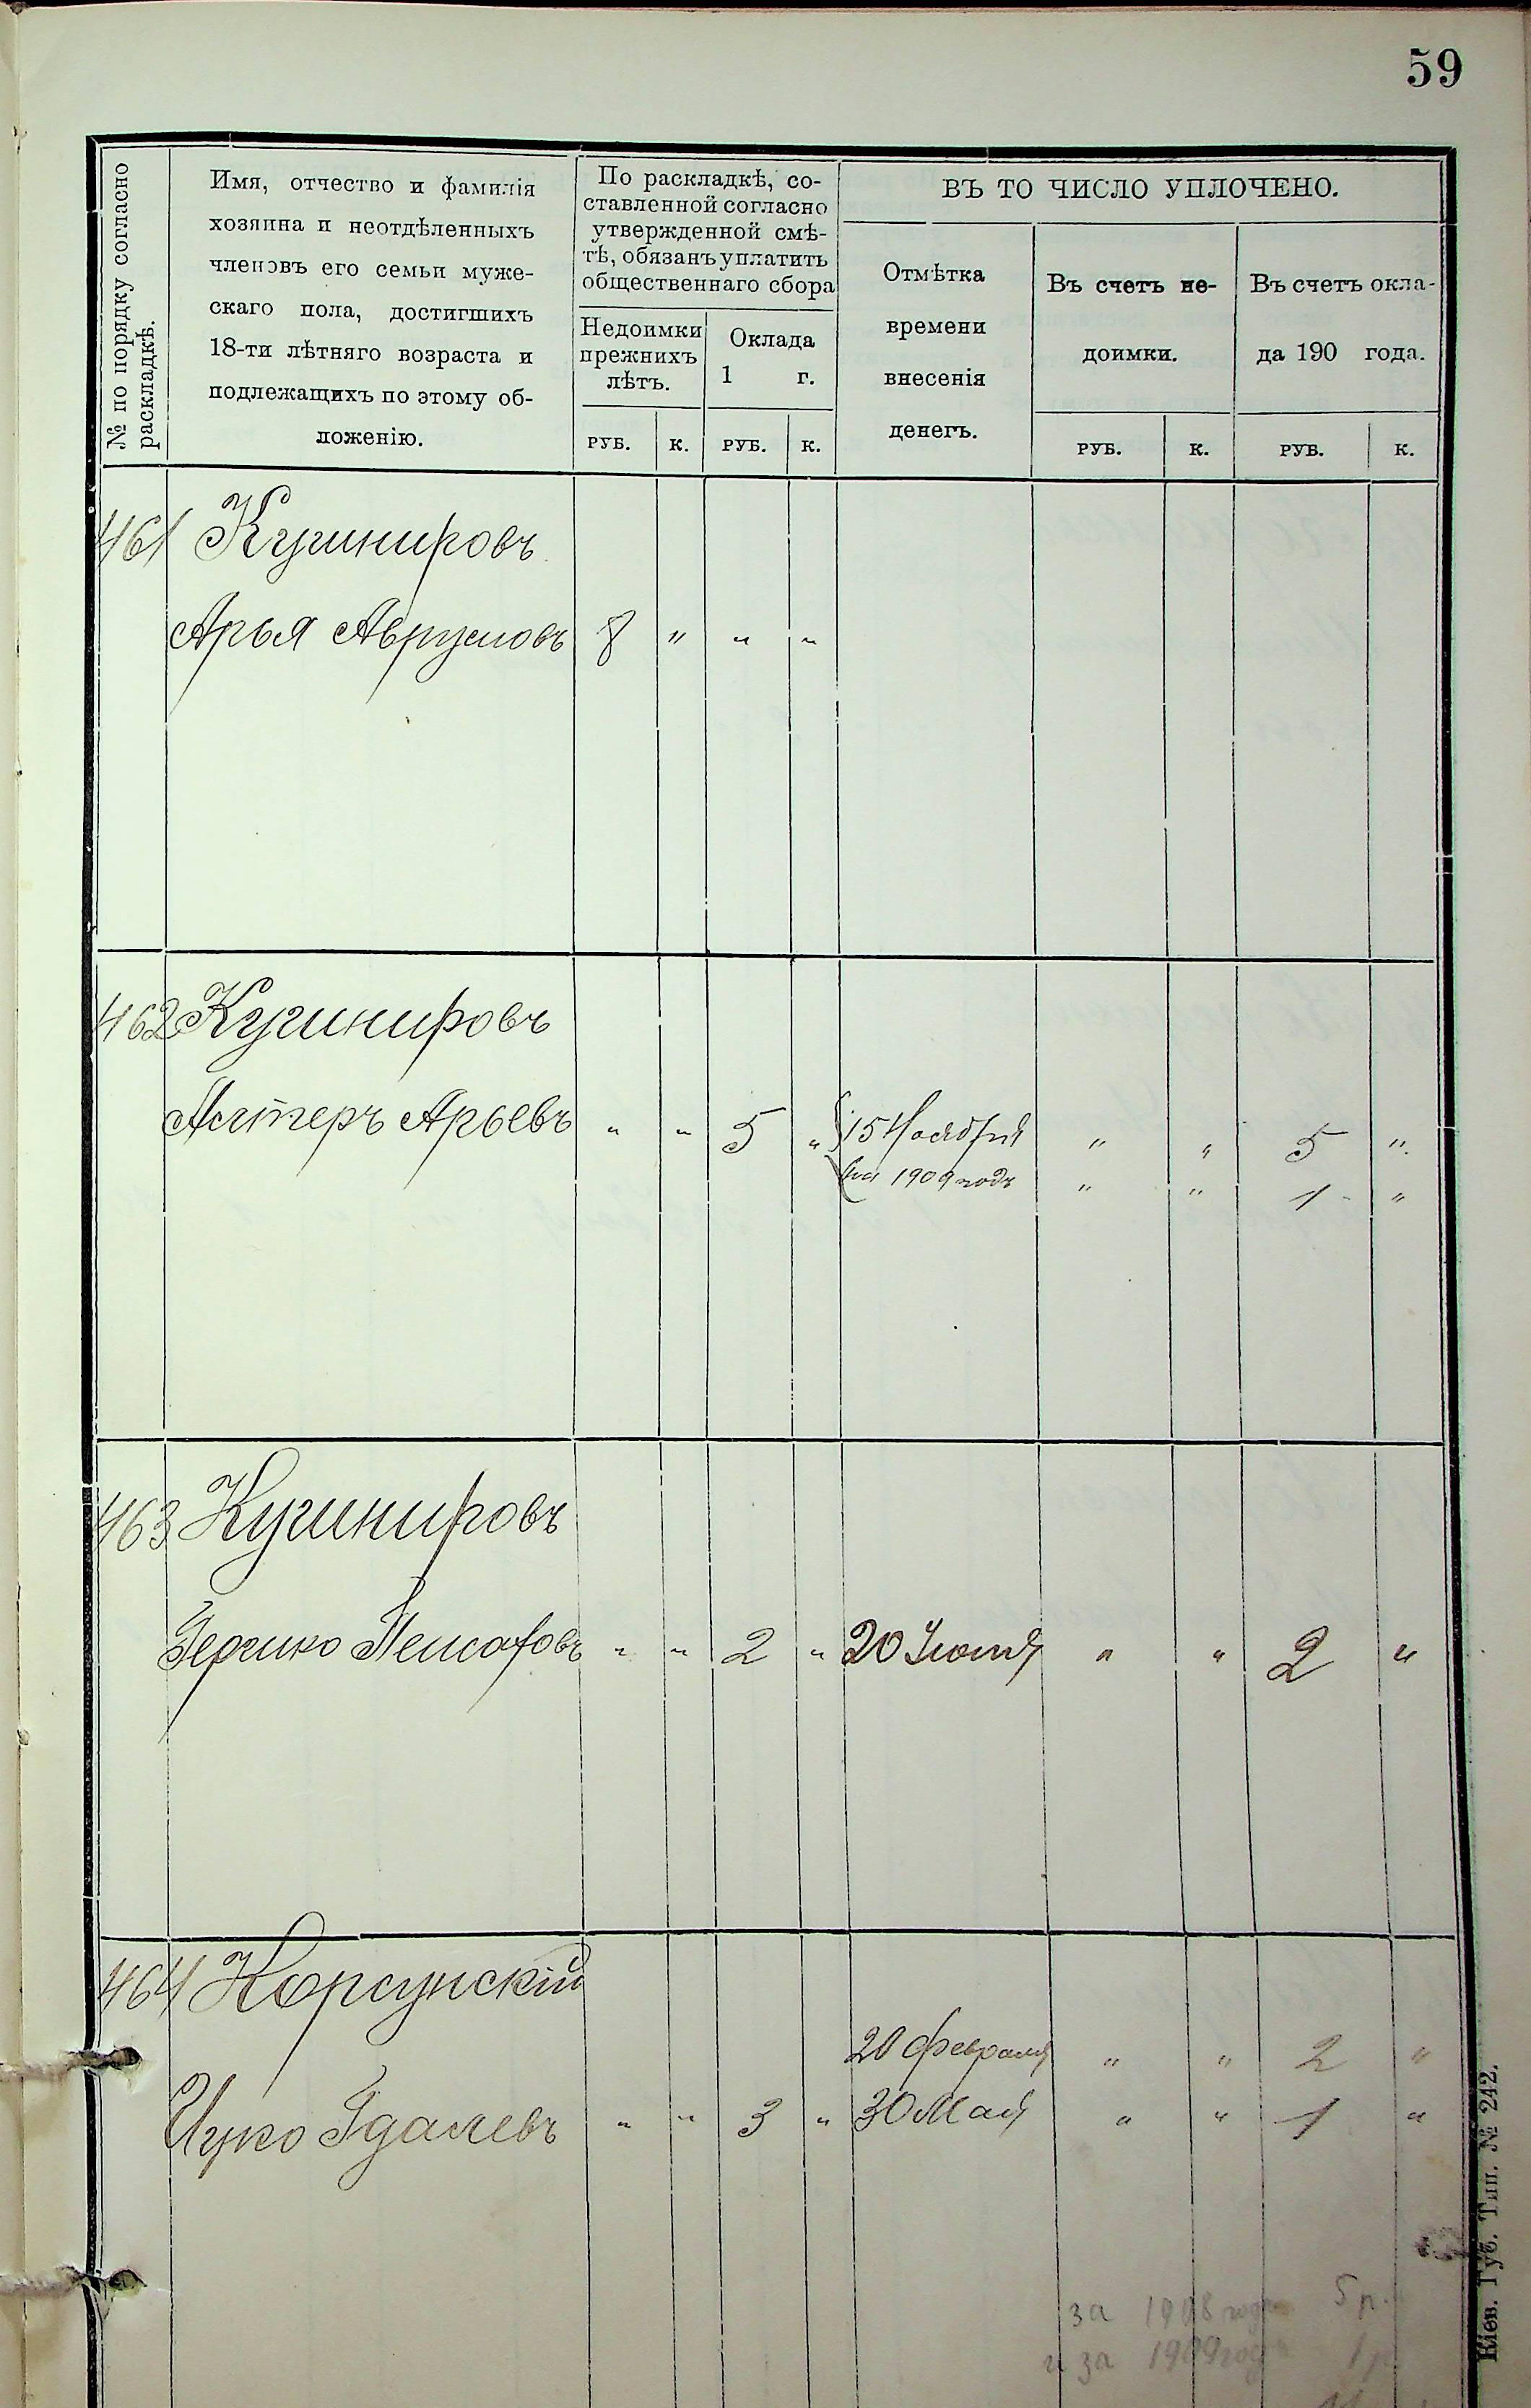 59
№ по порядку согласно
раскладкѣ.
Имя, отчество и фамилія
хозяина и неотдѣленныхъ
членовъ его семьи муже-
скаго пола, достигшихъ
18-ти лѣтняго возраста и
подлежащихъ по этому об-
ложенію.
По раскладкѣ, со-
ставленной согласно
утвержденной смѣ-
тѣ, обязанъ уплатить
общественнаго сбора
Недоимки
прежнихъ
лѣтъ.
Оклада
1 г.
ВЪ ТО ЧИСЛО УПЛОЧЕНО.
Отмѣтка
времени
внесенія
денегъ.
Въ счетъ не-
доимки.
Въ счетъ окла-
да 190 года.
РУБ. К. РУБ. К. РУБ. К. РУБ. К.
461 Кушнировъ
Арья Аврумовъ 8 " " "
462 Кушнировъ
Арьевъ " " 5 " 15 Ноября " " 5 "
на 1909 годъ " " 1 "
463 Кушнировъ
Гершко " " 2 " 20 " " 2 "
464 Корсунскій
20 Февраля " " 2 "
Ицко Гдалевъ " " 3 " 30 Мая " " 1 "
за 1908 годъ 5 р.
и за 1909 годъ 1 р
Кіев. Губ. Тип. № 242.